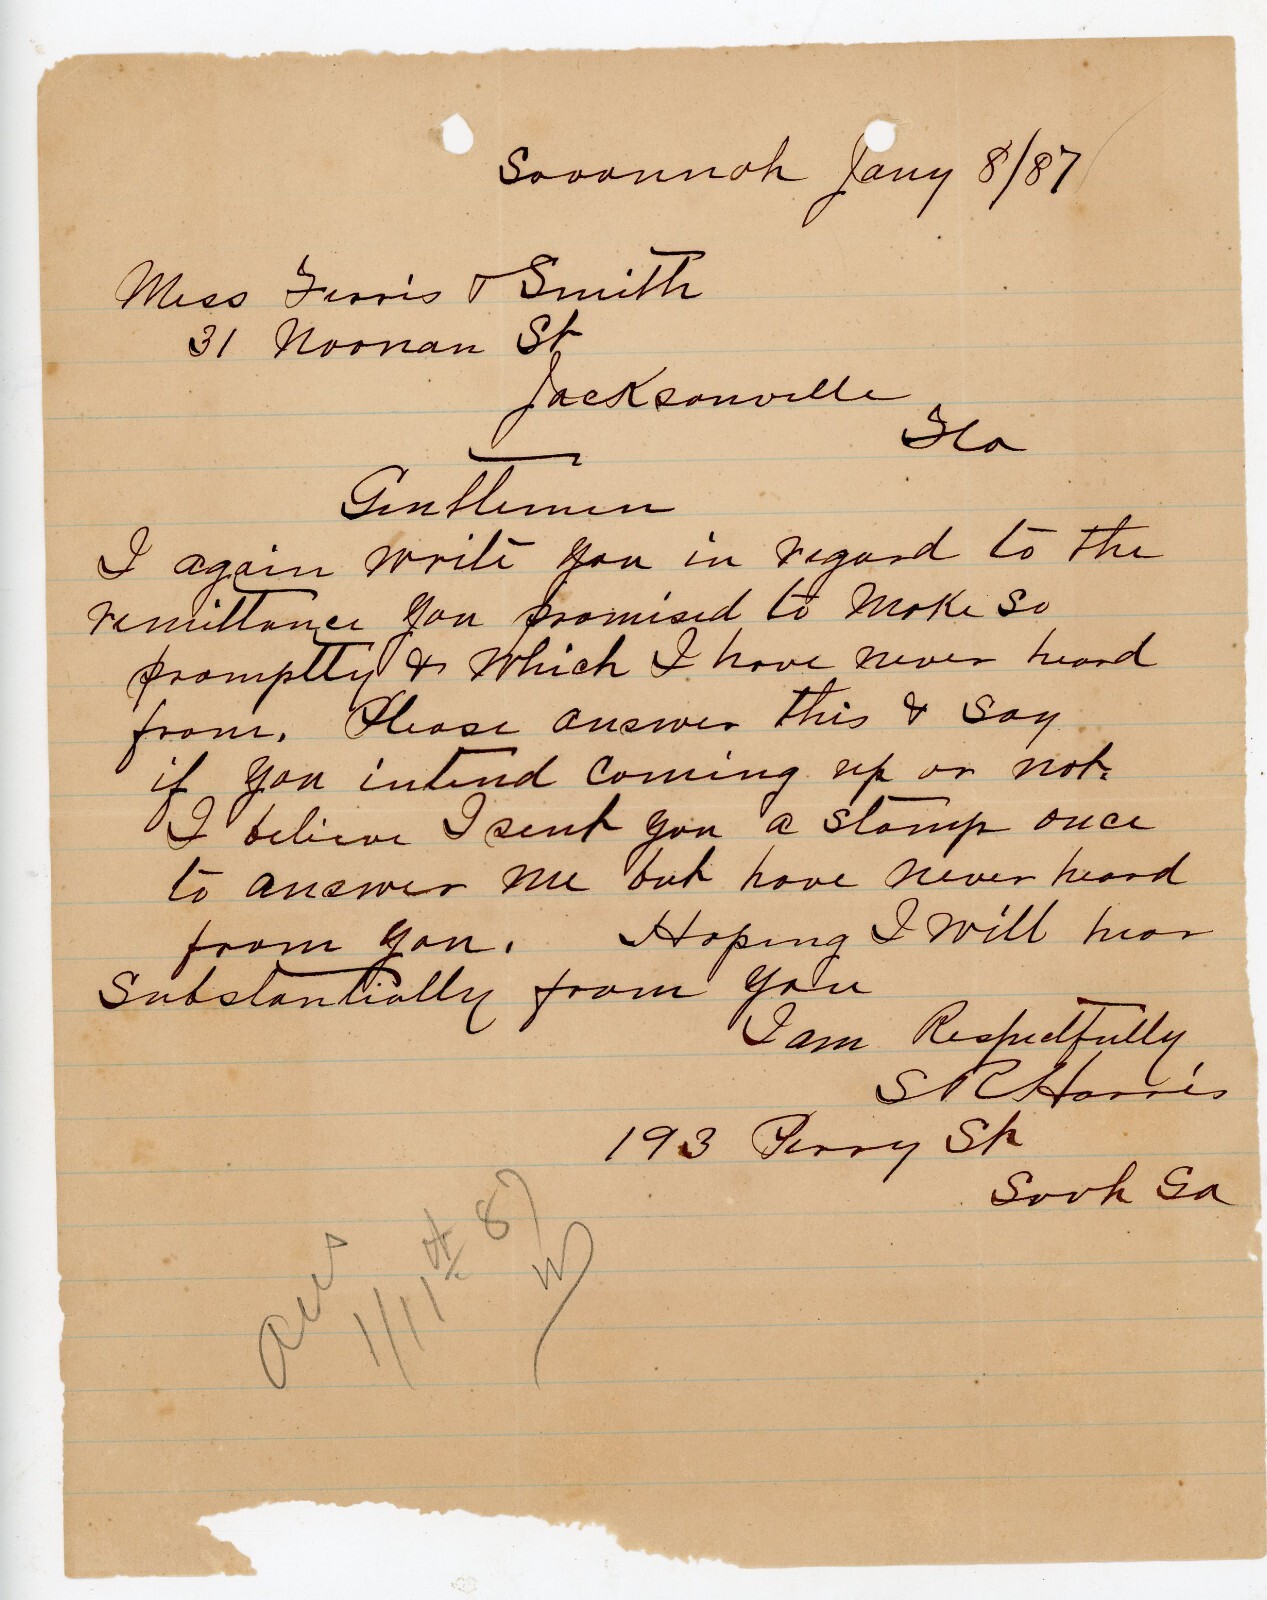 Savannah Jany 8/87
Mess Ferris & Smith
31 Noonan St
Jacksonville
Fla
Gentlemen
I again write you in regard to the
remittance you promised to make so
promptly & which I have never heard
from. Please answer this & say
if you intend coming up or not.
I believe I sent you a stamp once
to answer me but have never heard
from you. Hoping I will hear
substantially from you
I am Respectfully
S R Harris
193 Perry St
Savh Ga
ans
1/11th 87
W